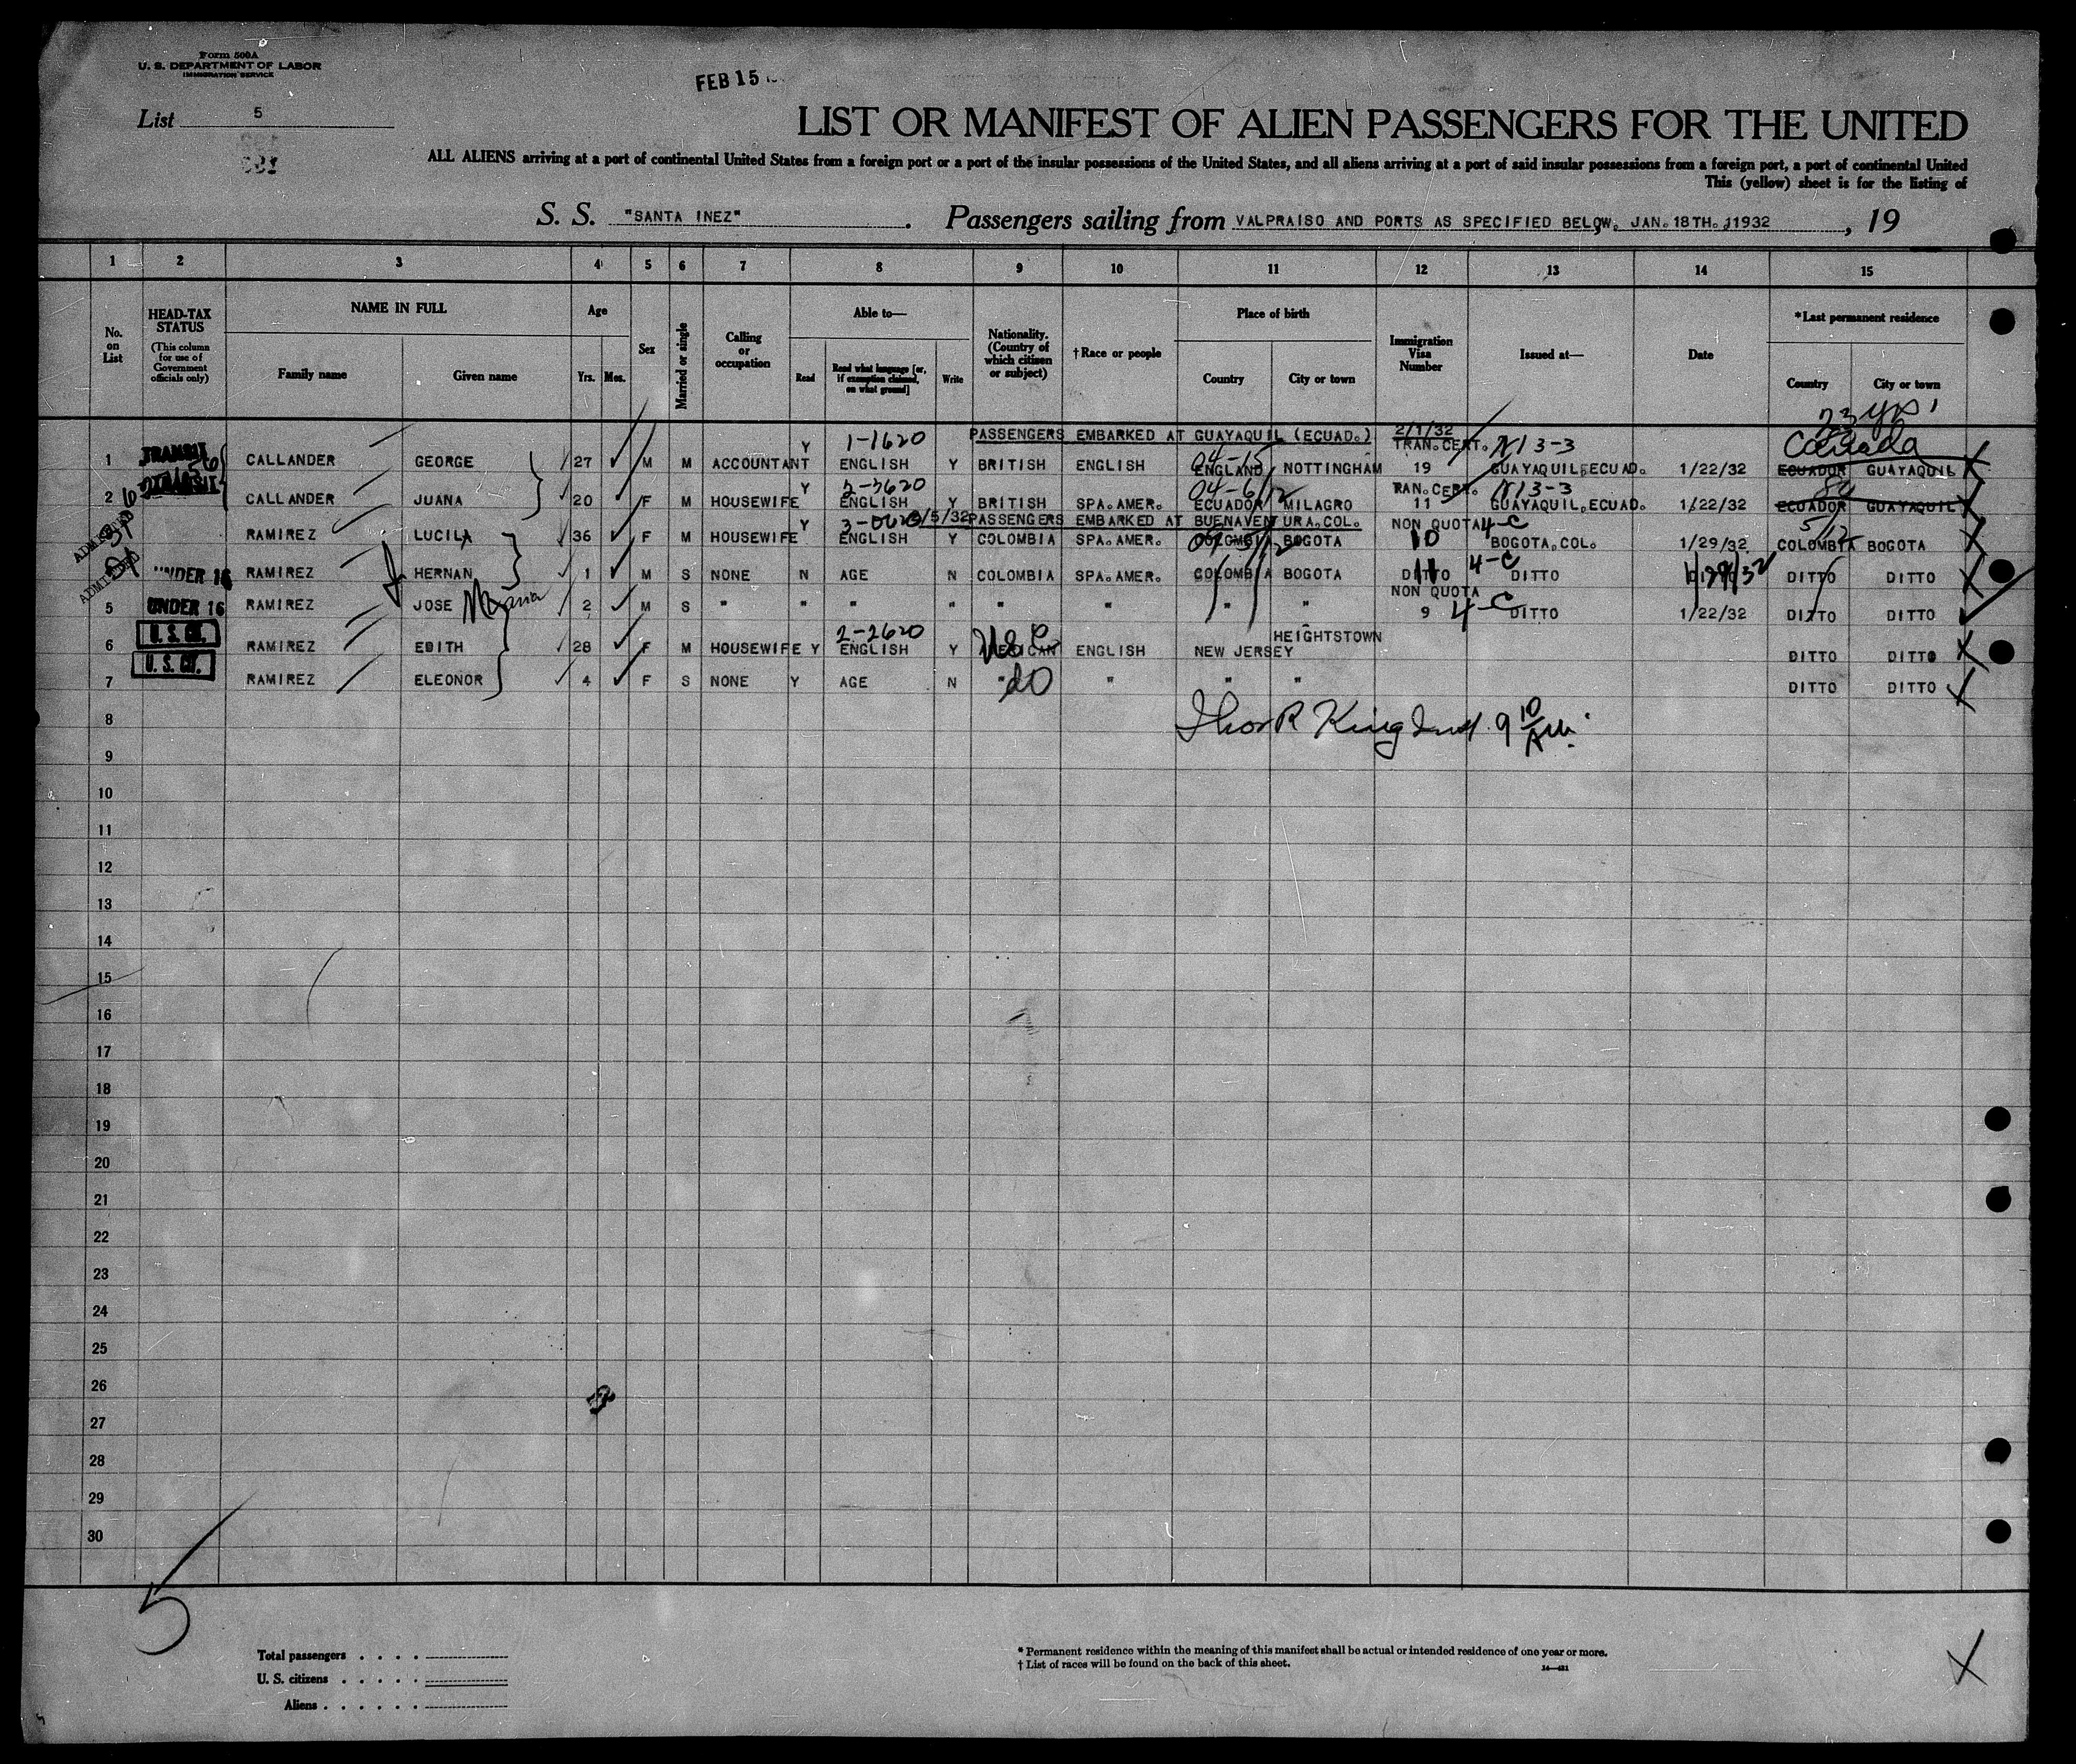 Form 500A
U. S. DEPARTMENT OF LABOR
IMMIGRATION SERVICE
FEB 15
List 5
LIST OR MANIFEST OF ALIEN PASSENGERS FOR THE UNITED
ALL ALIENS arriving at a port of continental United States from a foreign port or a port of the insular possessions of the United States, and all aliens arriving at a port of said insular possessions from a foreign port, a port of continental United
This (yellow) sheet is for the listing of
S. S. "SANTA INEZ" . Passengers sailing from VALPRAISO AND PORTS AS SPECIFIED BELOW. JAN. 18TH. 1932 , 19
1 2 3 4 5 6 7 8 9 10 11 12 13 14 15
No. on List
HEAD-TAX STATUS
(This column for use of Government officials only)
NAME IN FULL
Family name Given name
Age
Yrs. Mos.
Sex
Married or single
Calling or occupation
Able to—
Read
Read what language [or, if exemption claimed, on what ground]
Write
Nationality. (Country of which citizen or subject)
† Race or people
Place of birth
Country City or town
Immigration Visa Number
Issued at—
Date
*Last permanent residence
Country City or town
23 yrs
PASSENGERS EMBARKED AT GUAYAQUIL (ECUAD.) 2/1/32
1-1620 04-15 TRAN. CERT. N13-3 Canada
1 TRANSIT CALLANDER GEORGE 27 M M ACCOUNTANT Y ENGLISH Y BRITISH ENGLISH ENGLAND NOTTINGHAM 19 GUAYAQUIL, ECUAD. 1/22/32 ECUADOR GUAYAQUIL
2-3620 04-6/12 TRAN. CERT. N13-3
2 TRANSIT CALLANDER JUANA 20 F M HOUSEWIFE Y ENGLISH Y BRITISH SPA. AMER. ECUADOR MILAGRO 11 GUAYAQUIL, ECUAD. 1/22/32 ECUADOR GUAYAQUIL
2/5/32 PASSENGERS EMBARKED AT BUENAVENTURA. COL. NON QUOTA 4-C 5/12
ADMITTED RAMIREZ LUCILA 36 F M HOUSEWIFE Y ENGLISH Y COLOMBIA SPA. AMER. COLOMBIA BOGOTA 10 BOGOTA, COL. 1/29/32 COLOMBIA BOGOTA
ADMITTED UNDER 16 RAMIREZ HERNAN 1 M S NONE N AGE N COLOMBIA SPA. AMER. COLOMBIA BOGOTA DITTO 11 4-C DITTO 1/29/32 DITTO DITTO
NON QUOTA
5 UNDER 16 RAMIREZ JOSE Maria 2 M S " " " " " " " " 9 4-C DITTO 1/22/32 DITTO DITTO
U. S. CIT. 2-2620 HEIGHTSTOWN
6 RAMIREZ EDITH 28 F M HOUSEWIFE Y ENGLISH Y ENGLISH NEW JERSEY DITTO DITTO
U. S. CIT.
7 RAMIREZ ELEONOR 4 F S NONE Y AGE N " do " " " DITTO DITTO
8
Thos R King 9 10 AM.
9
10
11
12
13
14
15
16
17
18
19
20
21
22
23
24
25
26
27
28
29
30
5
Total passengers
U. S. citizens
Aliens
* Permanent residence within the meaning of this manifest shall be actual or intended residence of one year or more.
† List of races will be found on the back of this sheet.
14—421